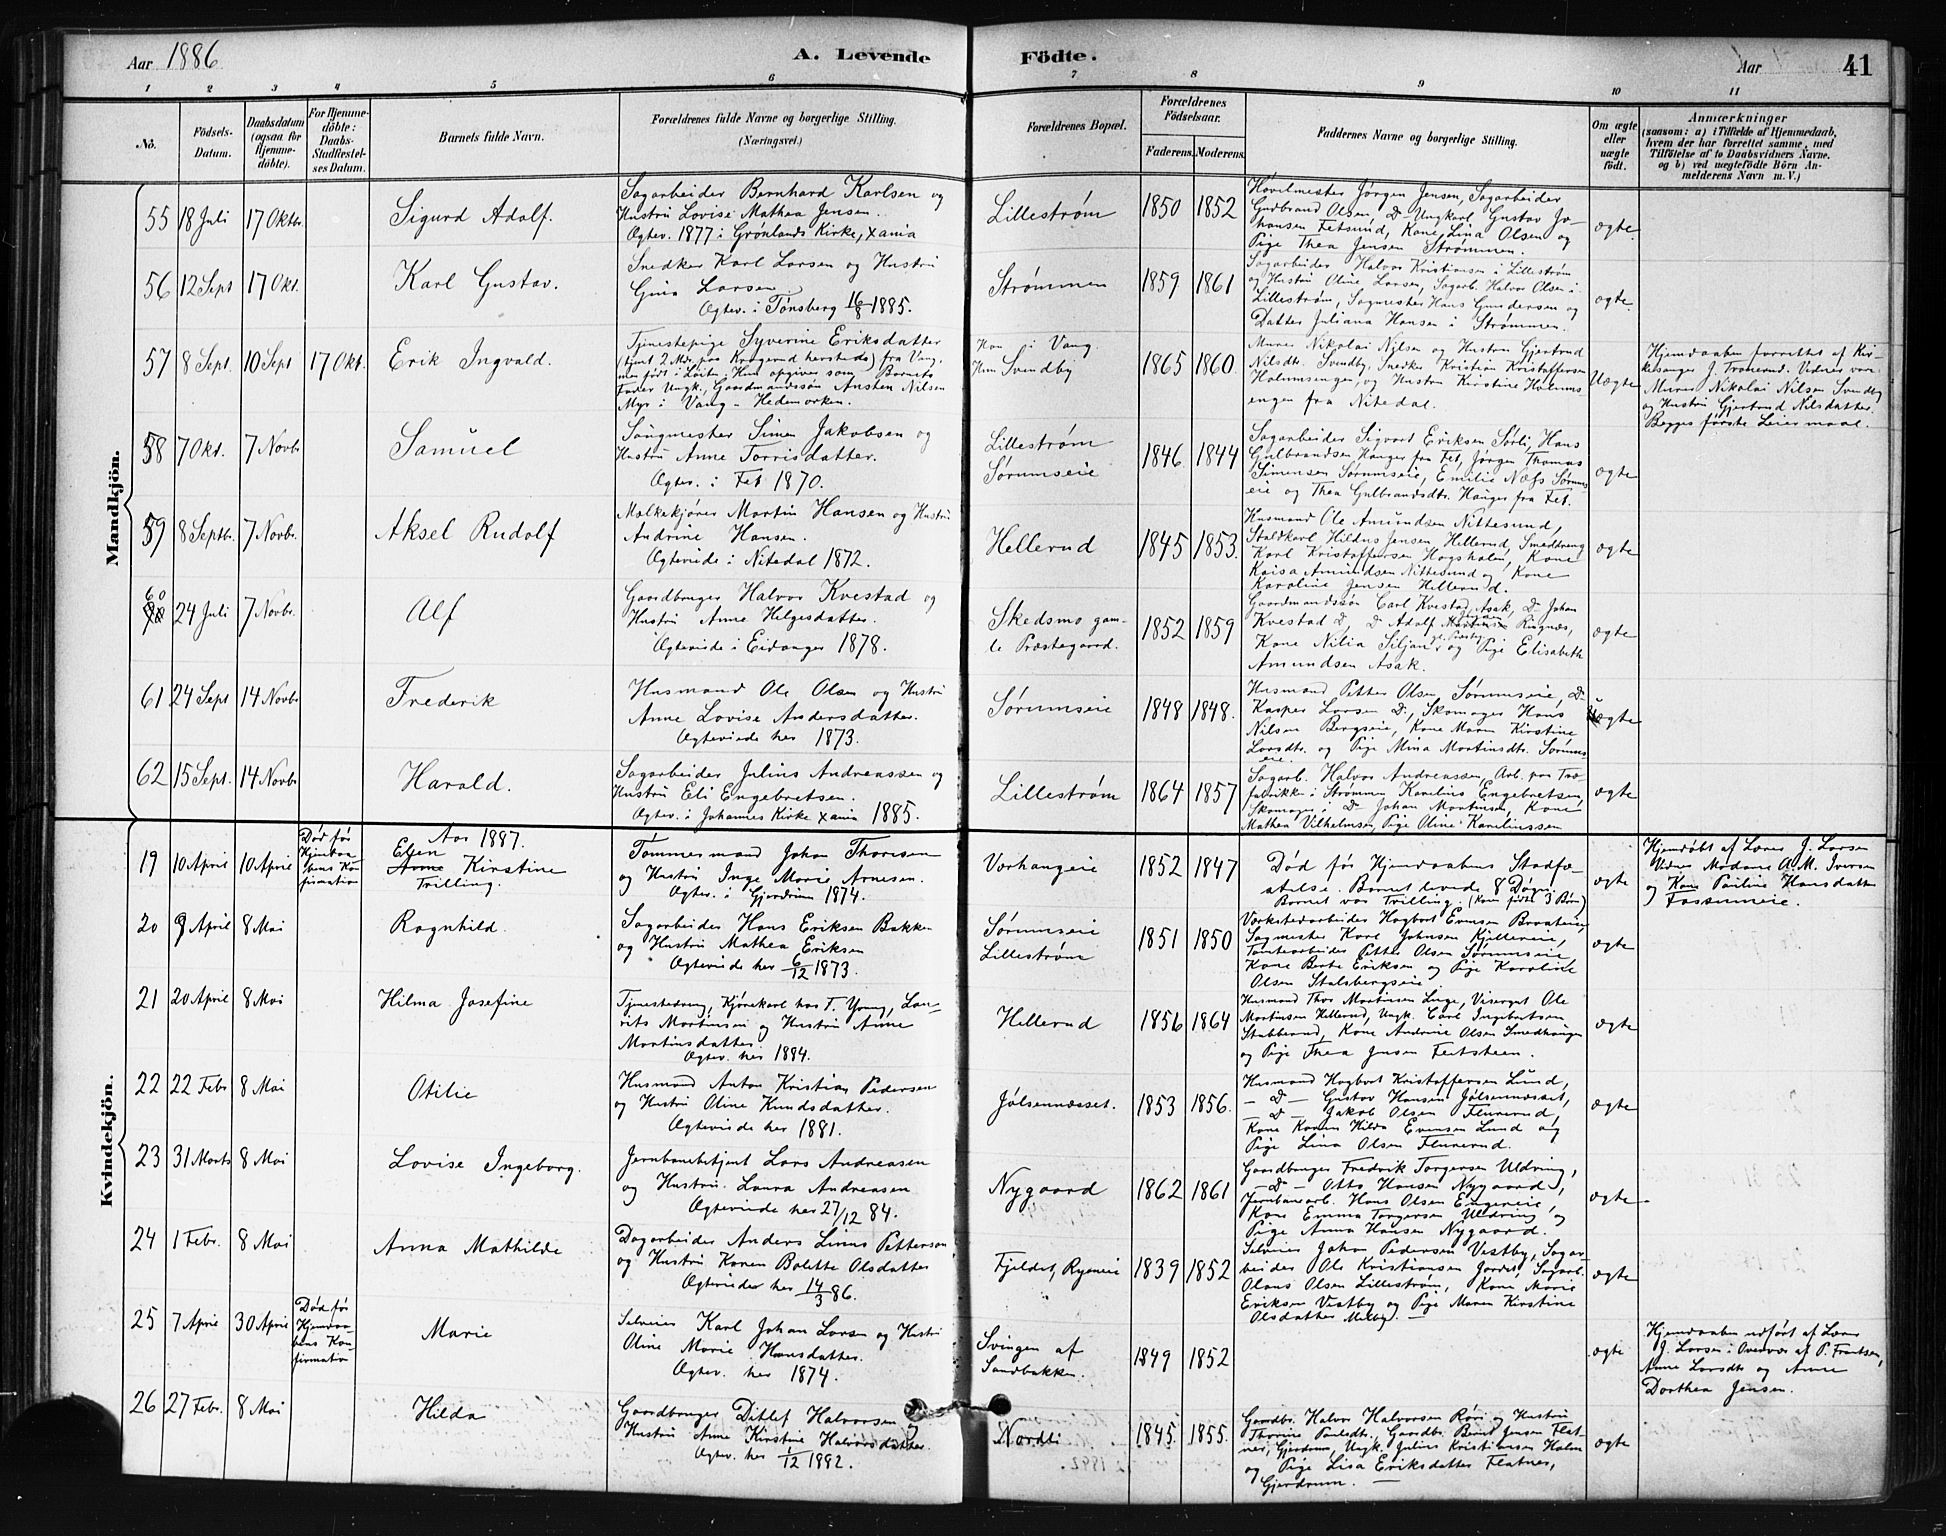 Aar 1886
A. Levende
Födte.
Aar
41
1 2 3 4 5 6 7 8 9 10 11
No.
Födsels-Datum.
Daabsdatum (ogsaa for Hjemmedöbte).
For Hjemmedöbte: Daabs-Stadfæstelses Datum.
Barnets fulde Navn.
Forældrenes fulde Navne og borgerlige Stilling.
(Næringsvei.)
Forældrenes Bopæl.
Forældrenes Födselsaar.
Faderens. Moderens.
Faddernes Navne og borgerlige Stilling.
Om ægte eller uægte födt.
Anmærkninger
(saasom: a) i Tilfælde af Hjemmedaab,
hvem der har forrettet samme, med
Tilföielse af to Daabsvidners Navne.
og b) ved uægtefödte Börn An-
melderens Navn m. V.)
Mandkjön.
55 18 Juli 17 Oktbr. Sigurd Adolf.
Sagarbeider Bernhard Karlsen og
Hustru Lovise Mathea Jensen.
Ægtev. 1877 i Grønlands Kirke, Xania
Lillestrøm 1850 1852
Høvelmester Jørgen Jensen, Sagarbeider
Gudbrand Olsen, D- Ungkarl Gustav Jo-
hansen Fetsund, Kone Lina Olsen og
Pige Thea Jensen Strømmen.
ægte.
56 12 Sept 17 Okt. Karl Gustav.
Snedker Karl Larsen og Hustru
Gina Larsen.
Ægtev. i Tønsberg 16/8 1885.
Strømmen 1859 1861
Sagarbeider Halvor Kristiansen i Lillestrøm
og Hustru Oline Larsen, Sagarb. Halvor Olsen i
Lillestrøm, Sagmester Hans Gundersen og
Datter Juliana Hansen i Strømmen.
ægte.
57 8 Sept. 10 Sept 17 Okt. Erik Ingvald.
Tjenestepige Syverine Eriksdatter
(tjent 2 Mdr. paa Krogerud herstede) fra Vang,
men født i Løiten. Hun opgiver som Barnets
Fader Ungk. Gaardmandssøn Ansten Nilsen
Myr i Vang - Hedemarken.
Han i Vang.
Hun Svindby 1865 1860.
Murer Nikolai Nilsen og Hustru Gjertrud
Nilsdtr. Svindby, Snedker Kristian Kristoffersen
Holmsengen, og Hustru Kirstine Holms
engen fra Nitedal.
Uægte
Hjemdaaben forrettet af Kir-
kesanger J. Tronerud. Vidner var
Murer Nikolai Nilsen Svindby
og Hustru Gjertrud Nilsdatter.
Begges første Leiermaal.
58 7 Okt. 7 Novbr Samuel
Saugmester Simen Jakobsen og
Hustru Anne Torrisdatter.
Ægtev. i Fet 1870.
Lillestrøm
Sørumseie 1846 1844
Sagarbeider Sigvard Eriksen Sørli, Hans
Gulbrandsen Hauger fra Fet, Jørgen Thomas
Simensen Sørumseie, Emilie Næss Sørums-
eie og Thea Gulbrandsdtr. Hauger fra Fet.
ægte
59 8 Septbr. 7 Novbr. Aksel Rudolf
Melkekjører Martin Hansen og Hustru
Andrine Hansen.
Ægteviede i Nitedal 1872.
Hellerud 1845 1853.
Husmand Ole Amundsen Nittesund,
Staldkarl Hildus Jensen Hellerud, Smeddreng
Karl Kristoffersen Hogshalen, Kone
Kaisa Amundsen Nittesund og Kone
Karoline Jensen Hellerud.
ægte
60 24 Juli 7 Novbr. Alf
Gaardbruger Halvor Kvestad og
Hustru Anne Helgesdatter.
Ægteviede i Eidanger 1878.
Skedsmo gam-
le Præstegaard. 1852 1859
Gaardmandssøn Carl Kvestad, Asak, D- Johan
Kvestad D., D- Adolf Ringnæs,
Kone Nilia Siljan og Pige Elisabeth
Amundsen Asak.
ægte
61 24 Sept 14 Novbr Frederik
Husmand Ole Olsen og Hustru
Anne Lovise Andersdatter.
Ægteviede her 1873.
Sørumseie 1848 1848.
Husmand Petter Olsen, Sørumseie, D-
Kasper Larsen D., Skomager Hans
Nilsen Bergseie, Kone Maren Kirstine
Larsdtr. og Pige Mina Martinsdtr. Sørums-
eie.
ægte
62 15 Sept. 14 Novbr Harald.
Sagarbeider Julius Andreassen og
Hustru Eli Engebretsen.
Ægtev. i Johannes Kirke Xania 1885.
Lillestrøm 1864 1857
Sagarb. Halvor Andreassen, Arb. paa Træ-
fabrikken i Strømmen Karelius Engebretsen,
Skomager i D- Johan Martinsen, Kone
Mathea Vilhelmsen, Pige Oline Kareliussen
ægte
Kvindekjön.
Aar 1887.
19 10 April 10 April
Død før
Hjemdaa-
bens Kon-
firmation
Ellen
Anne Kirstine
Trilling.
Tømmermand Johan Thoresen
og Hustru Inge Marie Arnesen.
Ægtev. i Gjerdrum 1874.
Vorhaugeie 1852 1847
Død før Hjemdaabens Stadfæ-
stelse. Barnet levede 8 Døgn.
Barnet var Trilling. (Kone fødte 3 Børn)
ægte
Hjemdøbt af Læge J. Larsen
Vidner Madame A.M. Iversen
og Kone Pauline Hansdatter
Fosseumeie.
20 9 April 8 Mai Ragnhild.
Sagarbeider Hans Eriksen Bakken
og Hustru Mathea Eriksen
Ægteviede her 6/12 1873.
Sørumseie
Lillestrøm 1851 1850
Værkstedarbeider Hagbart Evensen Braateneie,
Sagmester Karl Johnsen Kjellereie,
Tomtearbeider Petter Olsen Sørumseie,
Kone Berte Eriksen og Pige Karoline
Olsen Stalsbergseie.
ægte
21 20 April 8 Mai Hilma Josefine
Tjenestedreng, Kjørekarl hos F. Young, Lau-
rits Martinsen og Hustru Anne
Martinsdatter.
Ægtev. her 1884.
Hellerud 1856 1864
Husmand Thor Martinsen Linge, Visergut Ole
Martinsen Hellerud, Ungk. Carl Ingebretsen
Stubberud, Kone Andrine Olsen Smedhaugen
og Pige Thea Jensen Feitsteen.
ægte
22 22 Febr 8 Mai Otilie
Husmand Anton Kristian Pedersen
og Hustru Oline Knudsdatter.
Ægteviede her 1881.
Jølsennæsset. 1853 1856.
Husmand Hagbart Kristoffersen Lund,
- D - Gustav Hansen Jølsennæsset,
- D - Jakob Olsen Flunerud,
Kone Karen Hilda Evensen Lund og
Pige Lina Olsen Flunerud.
ægte
23 31 Marts 8 Mai Lovise Ingeborg.
Jernbanebetjent Lars Andreasen
og Hustru Laura Andreasen
Ægteviede her 27/12 84.
Nygaard 1862 1861
Gaardbruger Fredrik Torgersen Uldring,
- D - Otto Hansen Nygaard,
Jernbanearb. Hans Olsen Engereie,
Kone Emma Torgersen Uldring og
Pige Anna Hansen Nygaard.
ægte
24 1 Febr. 8 Mai Anna Mathilde
Dagarbeider Anders Linus Petterson
og Hustru Karen Bolette Olsdatter
Ægteviede her 14/3 86.
Fjeldet, Ryeneie 1839 1852
Selveier Johan Pedersen Vestby, Sagar-
beider Ole Kristiansen Jordet, Sagarb.
Olaus Olsen Lillestrøm, Kone Marie
Eriksen Vestby og Pige Maren Kirstine
Olsdatter Melby. -
ægte
25 7 April 30 April
Død før
Hjemdaa-
bens Kon-
firmation
Marie
Selveier Karl Johan Larsen og Hustru
Oline Marie Hansdatter.
Ægtev. her 1874.
Svingen af
Sandbakken. 1849 1852
ægte
Hjemdaaben udført af Læge
J. Larsen i Overvær af P. Frantsen,
Anne Larsdtr og Anne
Dorthea Jensen.
26 27 Febr. 8 Mai Hilda
Gaardbruger Ditlef Halvorsen og
Hustru Anne Kirstine Halvorsdatter
Ægtev. her 1/12 1882.
Nordli 1845 1855.
Gaardbr. Halvor Halvorsen Røri og Hustru
Thorine Paulsdtr., Gaardbr. Bernt Jensen Flat-
ner, Gjerdrum, Ungk. Julius Kristiansen Holm
og Pige Lisa Eriksdatter Flatner,
Gjerdrum. -
ægte